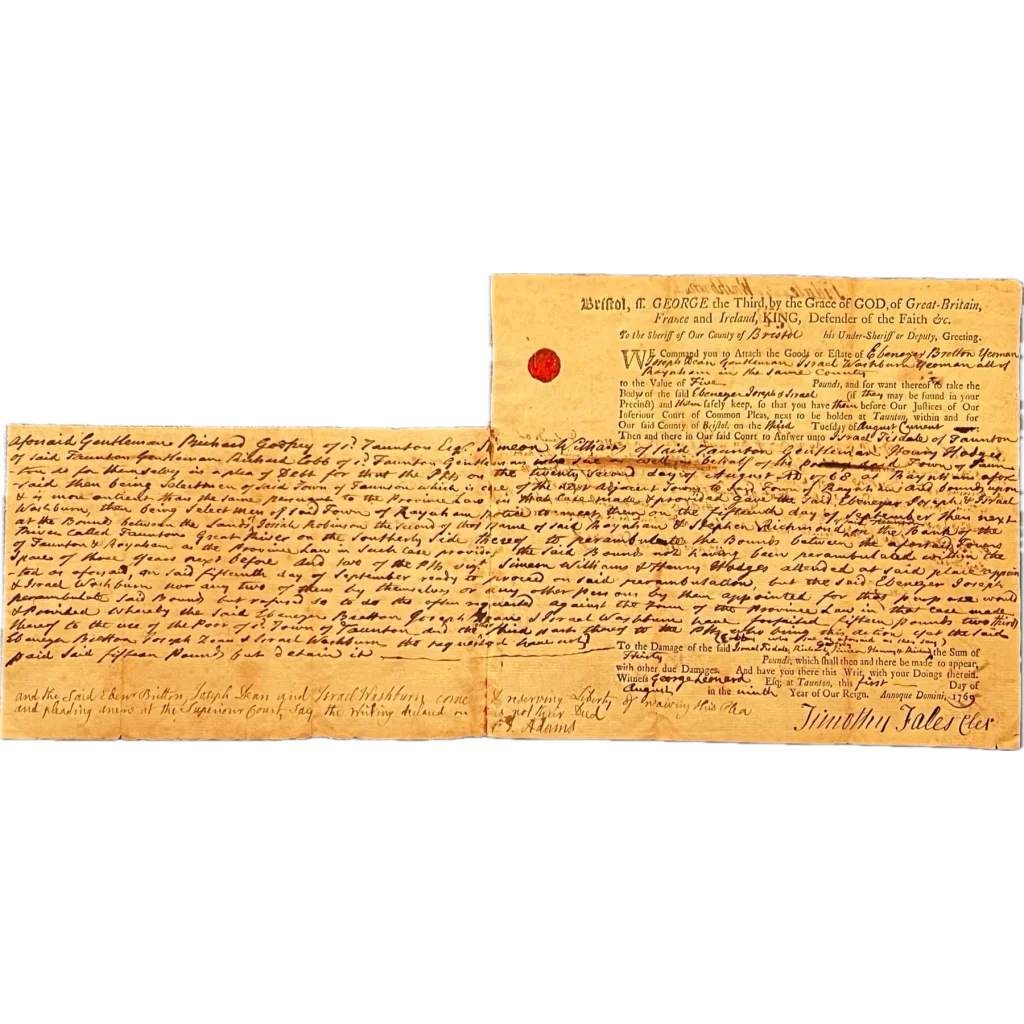 Bristol, ss. GEORGE the Third, by the Grace of GOD, of Great-Britain,
France and Ireland, KING, Defender of the Faith &c.
To the Sheriff of Our County of Bristol his Under-Sheriff or Deputy, Greeting.
WE Command you to Attach the Goods or Estate of Ebenezer Britton Yeoman
Joseph Dean Gentleman Israel Washburn Yeoman all of
Raynham in the same County
to the Value of Five Pounds, and for want thereof to take the
Body of the said Ebenezer Joseph & Israel (if they may be found in your
Precinct) and them safely keep, so that you have them before Our Justices of Our
Inferiour Court of Common Pleas, next to be holden at Taunton, within and for
Our said County of Bristol, on the third Tuesday of August Current
Then and there in Our said Court to Answer unto Israel Tisdale of Taunton
aforsaid Gentleman Richard Godfrey of sd. Taunton Esqr. Simeon Williams of said Taunton Gentleman Henry Hodges
of said Taunton Gentleman Richard Cobb of sd. Taunton Gentleman who sue as well in behalf of the Town of Taun
ton as for themselves in a plea of Debt for that the Plts on the twenty second day of August AD 1768 at Raynham afore
said then being Selectmen of said Town of Taunton which is one of the next adjacent Towns to said Town of Raynham and bounds upon
& is more antient than the same pursuant to the Province Law in that case made & provided gave the said Ebenezer Joseph & Israel
Washburn, then being Select men of said Town of Raynham notice to meet them on the fifteenth day of September then next
at the Bounds between the Lands Josiah Robinson the second of that name of said Raynham & Stephen Richmond on the Bank of the
River Called Taunton Great River on the Southerly Side thereof to perambulate the Bounds between the aforsaid Towns
of Taunton & Raynham as the Province Law in such case provides the said Bounds not having been perambulated within the
space of three years next before and two of the Plts vizt. Simeon Williams & Henry Hodges attended at said place appoin
ted as aforsaid, on said fifteenth day of September ready to proceed on said perambulation, but the said Ebenezer Joseph
& Israel Washburn nor any two of them by themselves or any other persons by them appointed for that purpose would
perambulate said Bounds but refused so to do tho often requested against the form of the Province Law in that case made
& provided whereby the said Ebenezer Britton Joseph Dean & Israel Washburn have forfeited fifteen pounds two thirds
thereof to the use of the Poor of sd. Town of Taunton and the other third part thereof to the Plts who bring this action yet the said
Ebenezer Britton Joseph Dean & Israel Washburn tho requested have not
paid said fifteen Pounds but detain it
To the Damage of the said Israel Tisdale, Richd Simeon Henry & Richd the Sum of
Thirty Pounds, which shall then and there be made to appear,
with other due Damages. And have you there this Writ, with your Doings therein.
Witness George Leonard Esq; at Taunton, this first Day of
August in the ninth Year of Our Reign. Annoque Domini, 1769
Timothy Fales Cler
and the Said Ebenr Britton, Joseph Dean and Israel Washburn come & reserving Liberty of waiving this Plea
and pleading anew at the Superiour Court, Say the Writing declared on is not their Deed
Adams